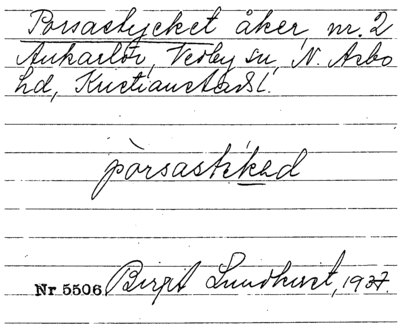 Porsastycket åker, nr. 2
Ankarlöv, Vedby sn, N. Åsbo
hd, Kristianstads l.
pòrsastikəd
Nr 5506 Birgit Lundqvist, 1937.